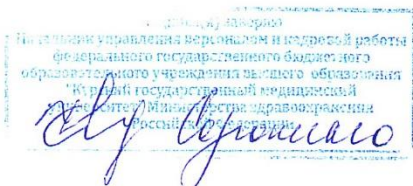 Начальник управления персоналом и кадровой работы
федерального государственного бюджетного
образовательного учреждения высшего образования
"Курский государственный медицинский
университет" Министерства здравоохранения
Российской Федерации